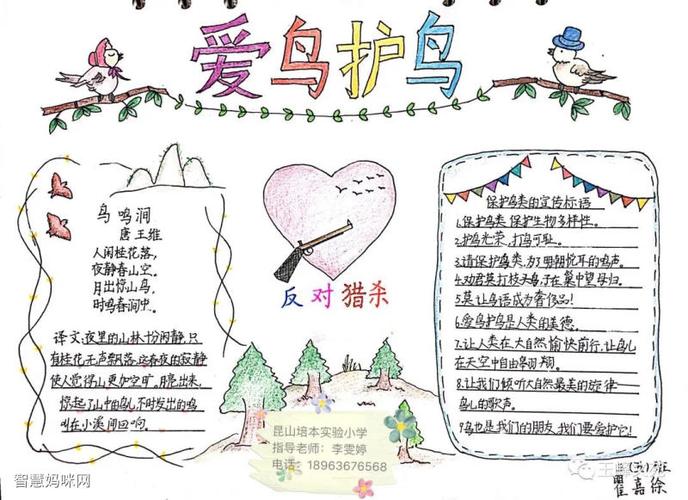 爱鸟护鸟
鸟鸣涧
唐 王维
人闲桂花落,
夜静春山空。
月出惊山鸟,
时鸣春涧中。
译文:夜里的山林十分闲静,只
有桂花无声飘落,这春夜的寂静
使人觉得山更加空旷。月亮出来,
惊起了山中的鸟儿,不时发出的鸣
叫在小溪间回响。
反对猎杀
保护鸟类的宣传标语
1.保护鸟类 保护生物多样性。
2.护鸟光荣,打鸟可耻。
3.请保护鸟类,为了明朝悦耳的鸣声。
4.劝君莫打枝头鸟,子在巢中望母归。
5.莫让鸟语成为奢侈品!
6.爱鸟护鸟是人类的美德。
7.让人类在大自然愉快前行,让鸟儿
在天空中自由翱翔。
8.让我们倾听大自然最美的旋律
鸟儿的歌声。
9.鸟也是我们的朋友,我们要爱护它!
昆山培本实验小学
指导老师:李雯婷
电话:18963676568
班
瞿嘉徐
智慧妈咪网